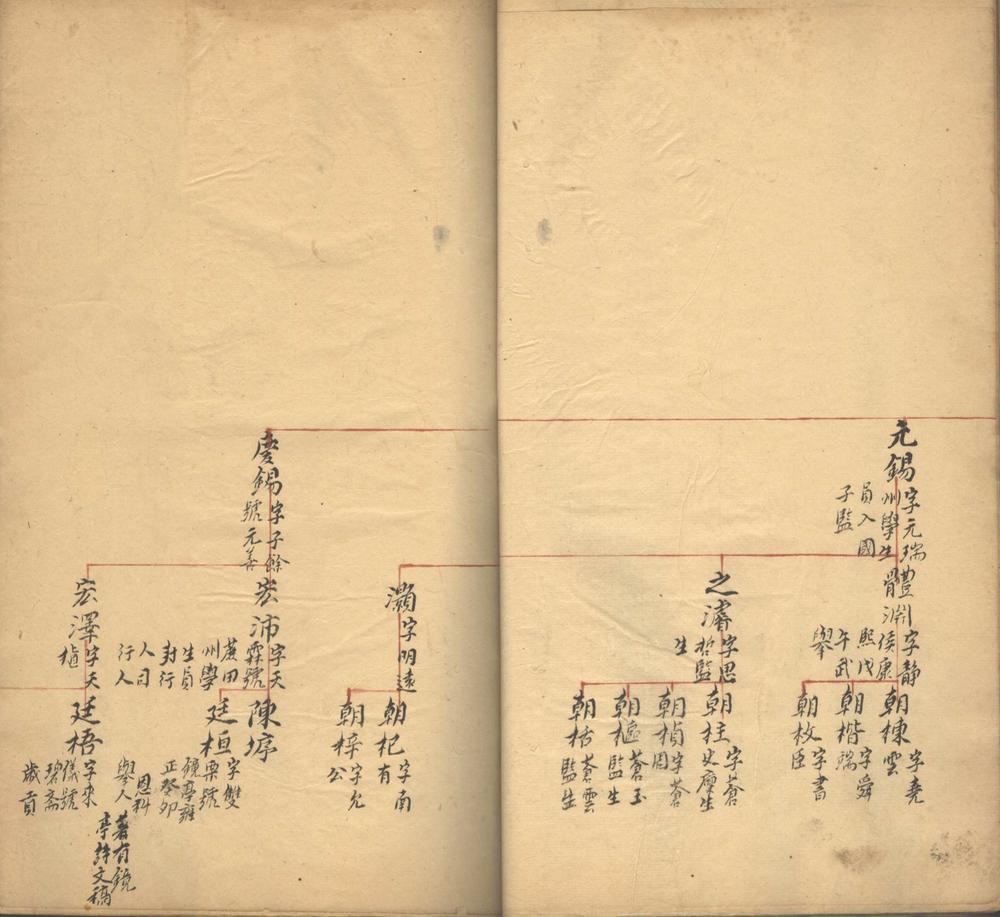 元錫
字元瑞
州學生
員入國
子監
體淵
字靜
侯康
熙戊
午武
舉
朝棟
字堯
雲
朝楷
字舜
瑞
朝枚
字書
臣
之濬
字思
哲監
生
朝柱
字蒼
廩生
朝楨
字蒼
周
朝樞
蒼玉
監生
朝栝
蒼雲
監生
灝
字明遠
朝杞
字南
有
朝梓
字允
公
慶錫
字子餘
號元善
宏沛
字天
霖號
蔗田
州學
生員
封行
人司
行人
陳垿
廷桓
字雙
栗號
鏡亭雍
正癸卯
恩科
舉人
著有鏡
亭詩文稿
宏澤
字天
植
廷梧
字來
儀號
碧齋
歲貢